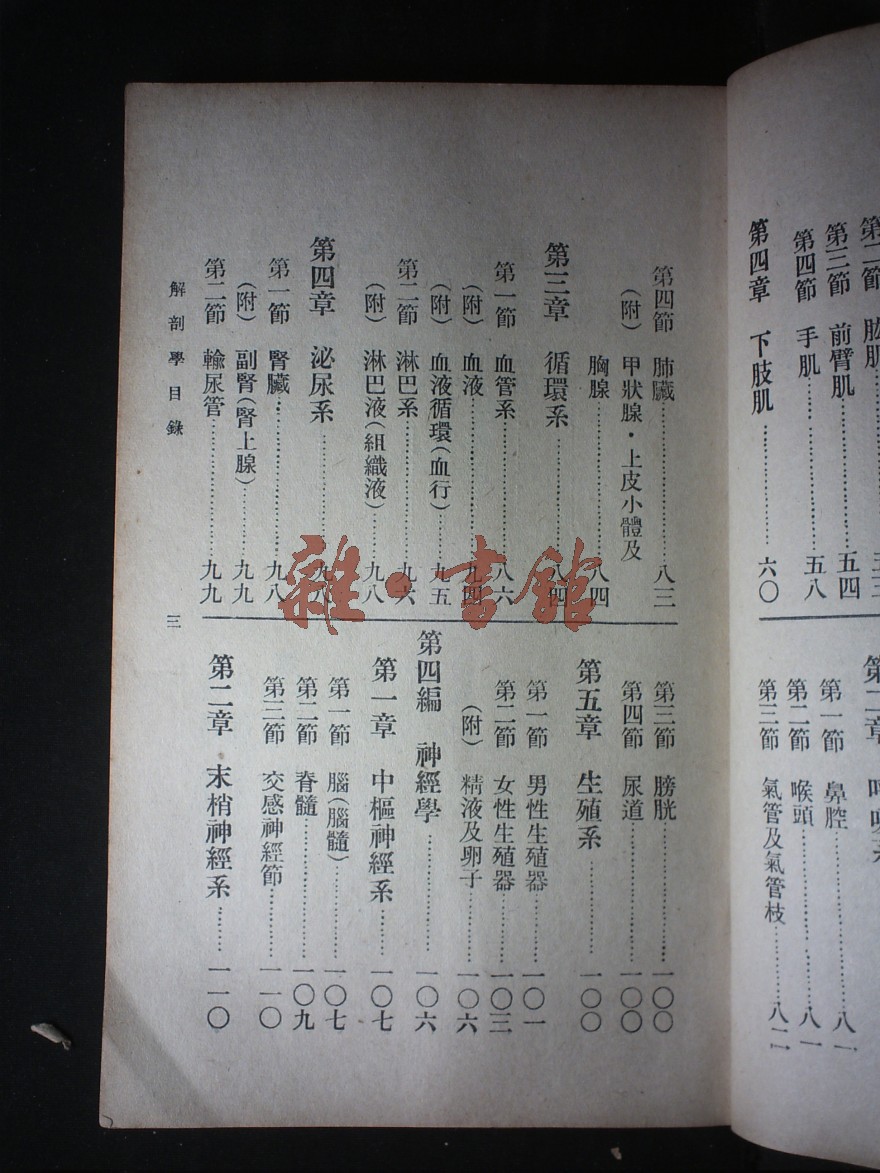 第二節 肱肌……五三
第三節 前臂肌……五四
第四節 手肌……五八
第四章 下肢肌……六〇
第一節 鼻腔……八一
第二節 喉頭……八一
第三節 氣管及氣管枝……八二
第四節 肺臟……八三
(附) 甲狀腺・上皮小體及
胸腺……八四
第三章 循環系……八四
第一節 血管系……八六
(附) 血液……九四
(附) 血液循環(血行)……九五
第二節 淋巴系……九六
(附) 淋巴液(組織液)……九八
第四章 泌尿系……九八
第一節 腎臟……九八
(附) 副腎(腎上腺)……九九
第二節 輸尿管……九九
第三節 膀胱……一〇〇
第四節 尿道……一〇〇
第五章 生殖系……一〇〇
第一節 男性生殖器……一〇一
第二節 女性生殖器……一〇三
(附) 精液及卵子……一〇六
第四編 神經學……一〇六
第一章 中樞神經系……一〇七
第一節 腦(腦髓)……一〇七
第二節 脊髓……一〇九
第三節 交感神經節……一一〇
第二章 末梢神經系……一一〇
解剖學目錄 三
雜·書館